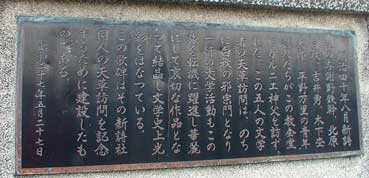 明治四十年八月新詩
社の与謝野鉄幹、北原
白秋、吉井勇、木下杢
太郎、平野万里の青年
詩人たちがこの教会堂
にガルニエ神父を訪ず
れた。この五人の文学
者の天草訪問は、のち
に白秋の邪宗門となり
一行の文学活動もこの
後を転機に躍進し
にして哀切な作品とな
って結晶し文学史上光
彩をはなっている。
この歌碑はその新詩社
同人の天草訪問を記念
するために建設したも
のである。
昭和 年五月二十七日